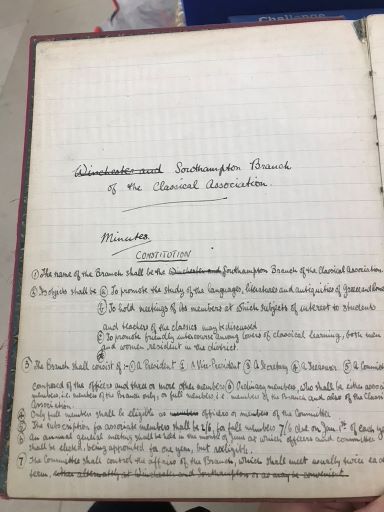 Challenge
Winchester and Southampton Branch
of the Classical Association.
Minutes.
CONSTITUTION
① The name of the Branch shall be the Winchester and Southampton Branch of the Classical Association.
② Its objects shall be ⓐ To promote the study of the languages, literatures and antiquities of Greece and Rome
ⓑ To hold meetings of its members at which subjects of interest to students
and teachers of the classics may be discussed
ⓒ To promote friendly intercourse among lovers of classical learning, both men
and women resident in the district.
③ The Branch shall consist of :- ① A President ② A Vice-President ③ A Secretary ④ A Treasurer ⑤ A Committee
composed of the officers and three or more other members ⑥ Ordinary members, who shall be either associate
members, i.e. members of the Branch only, or full members i.e. members of the Branch and also of the Classical
Association.
④ Only full members shall be eligible as officers or members of the Committee
⑤ The subscription for associate members shall be 2/6, for full members 7/6 due on Jan 1st of each year
⑥ An annual general meeting shall be held in the month of June at which officers and committee
shall be elected, being appointed for one year, but re-eligible.
⑦ The Committee shall control the affairs of the Branch, which shall meet usually twice each
term, either alternately at Winchester and Southampton or as may be convenient.